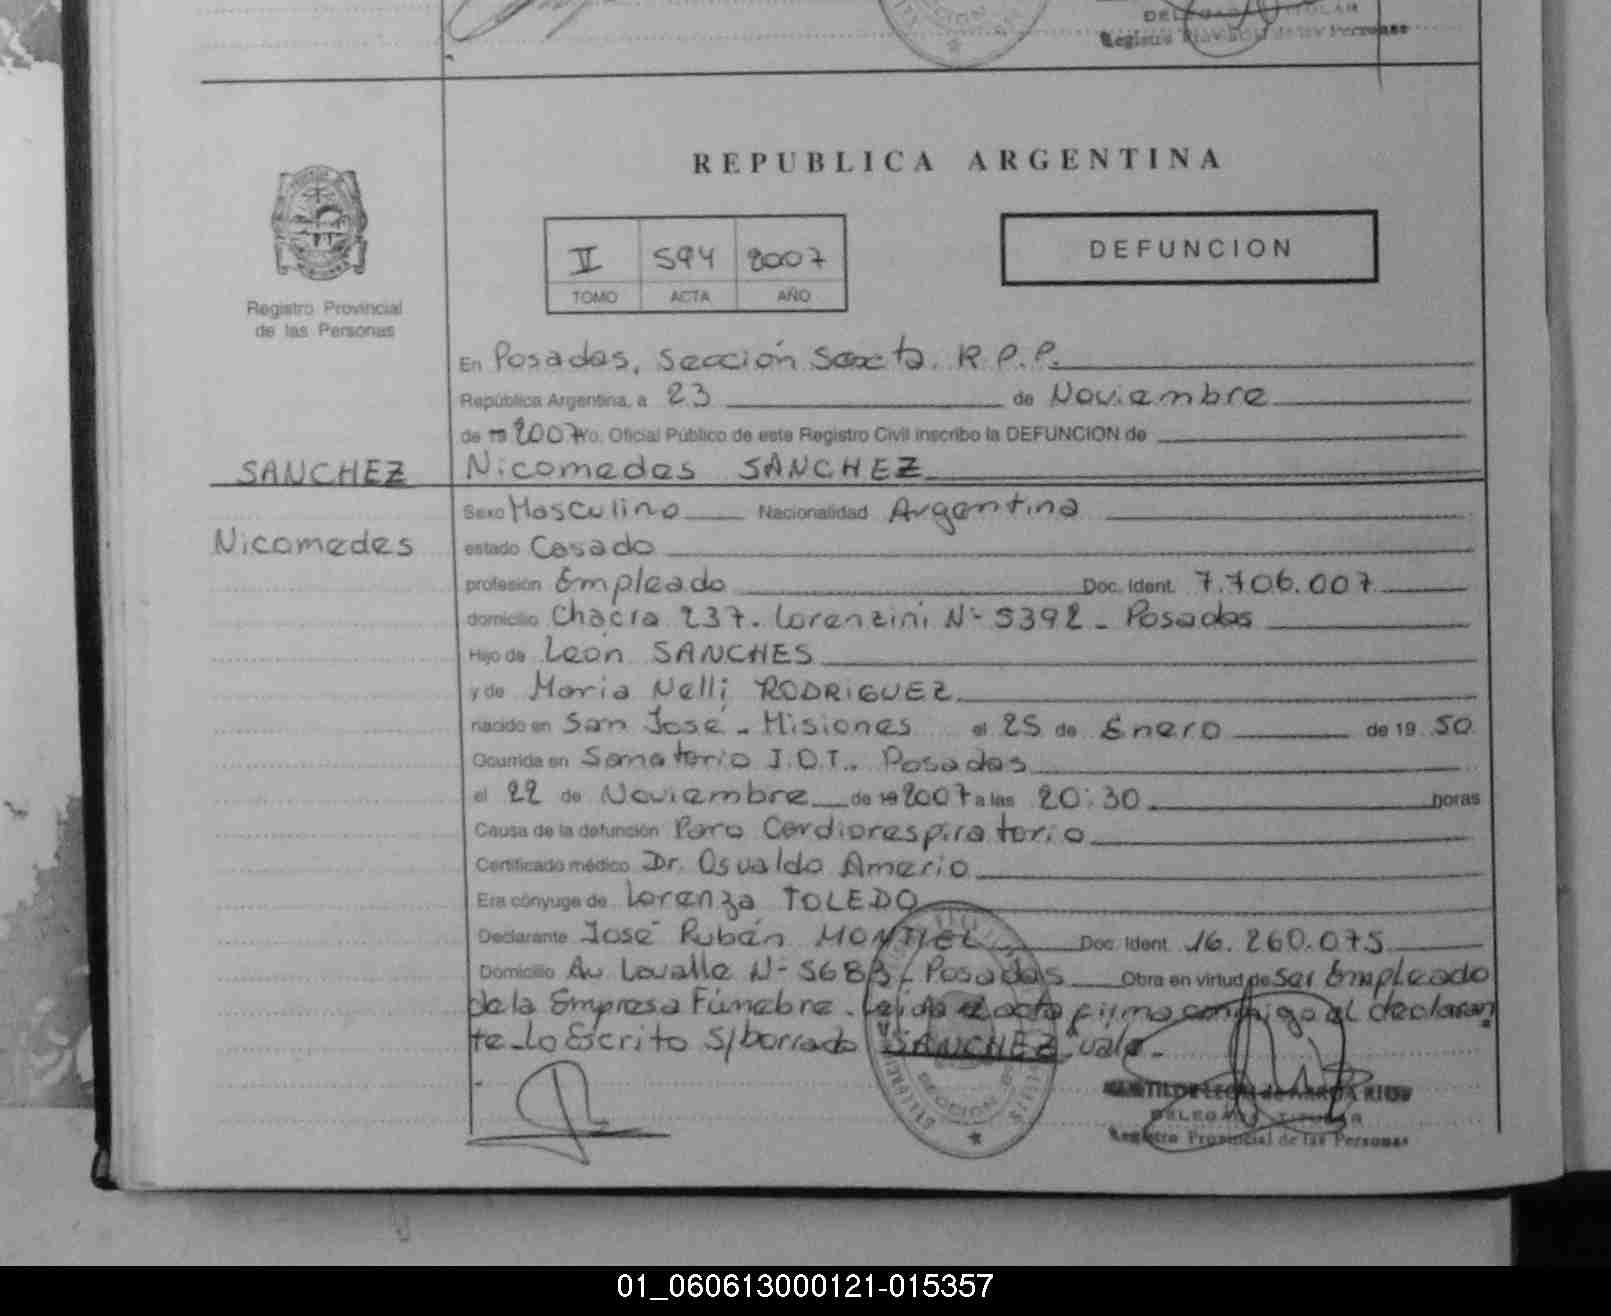 DELEGADO TITULAR
Registro Provincial de las Personas
REPUBLICA ARGENTINA
II 594 2007
TOMO ACTA AÑO
DEFUNCION
Registro Provincial
de las Personas
En Posadas, Sección Sexta. R.P.P.
República Argentina, a 23 de Noviembre
de 19 2007 Yo, Oficial Público de este Registro Civil inscribo la DEFUNCION de
SANCHEZ Nicomedes SANCHEZ
Sexo Masculino Nacionalidad Argentina
Nicomedes estado Casado
profesión Empleado Doc. Ident. 7.706.007
domicilio Chacra 237. Lorenzini N- 5392 - Posadas
Hijo de León SANCHES
y de Maria Nelli RODRIGUEZ
nacido en San José - Misiones el 25 de Enero de 19 50
Ocurrida en Sanatorio I.O.T. Posadas
el 22 de Noviembre de 19 2007 a las 20:30 horas
Causa de la defunción Paro Cardiorespiratorio
Certificado médico Dr. Osvaldo Amerio
Era cónyuge de Lorenza TOLEDO
Declarante José Rubén MONTIEL Doc. Ident. 16.260.075
Domicilio Av Lavalle N- 5683 - Posadas Obra en virtud de Ser Empleado
de la Empresa Fúnebre. Leida el acta firma conmigo el declaran
te - Lo Escrito S/borrado SANCHEZ vale -
SECCION
DELEGADO TITULAR
Registro Provincial de las Personas
01_060613000121-015357